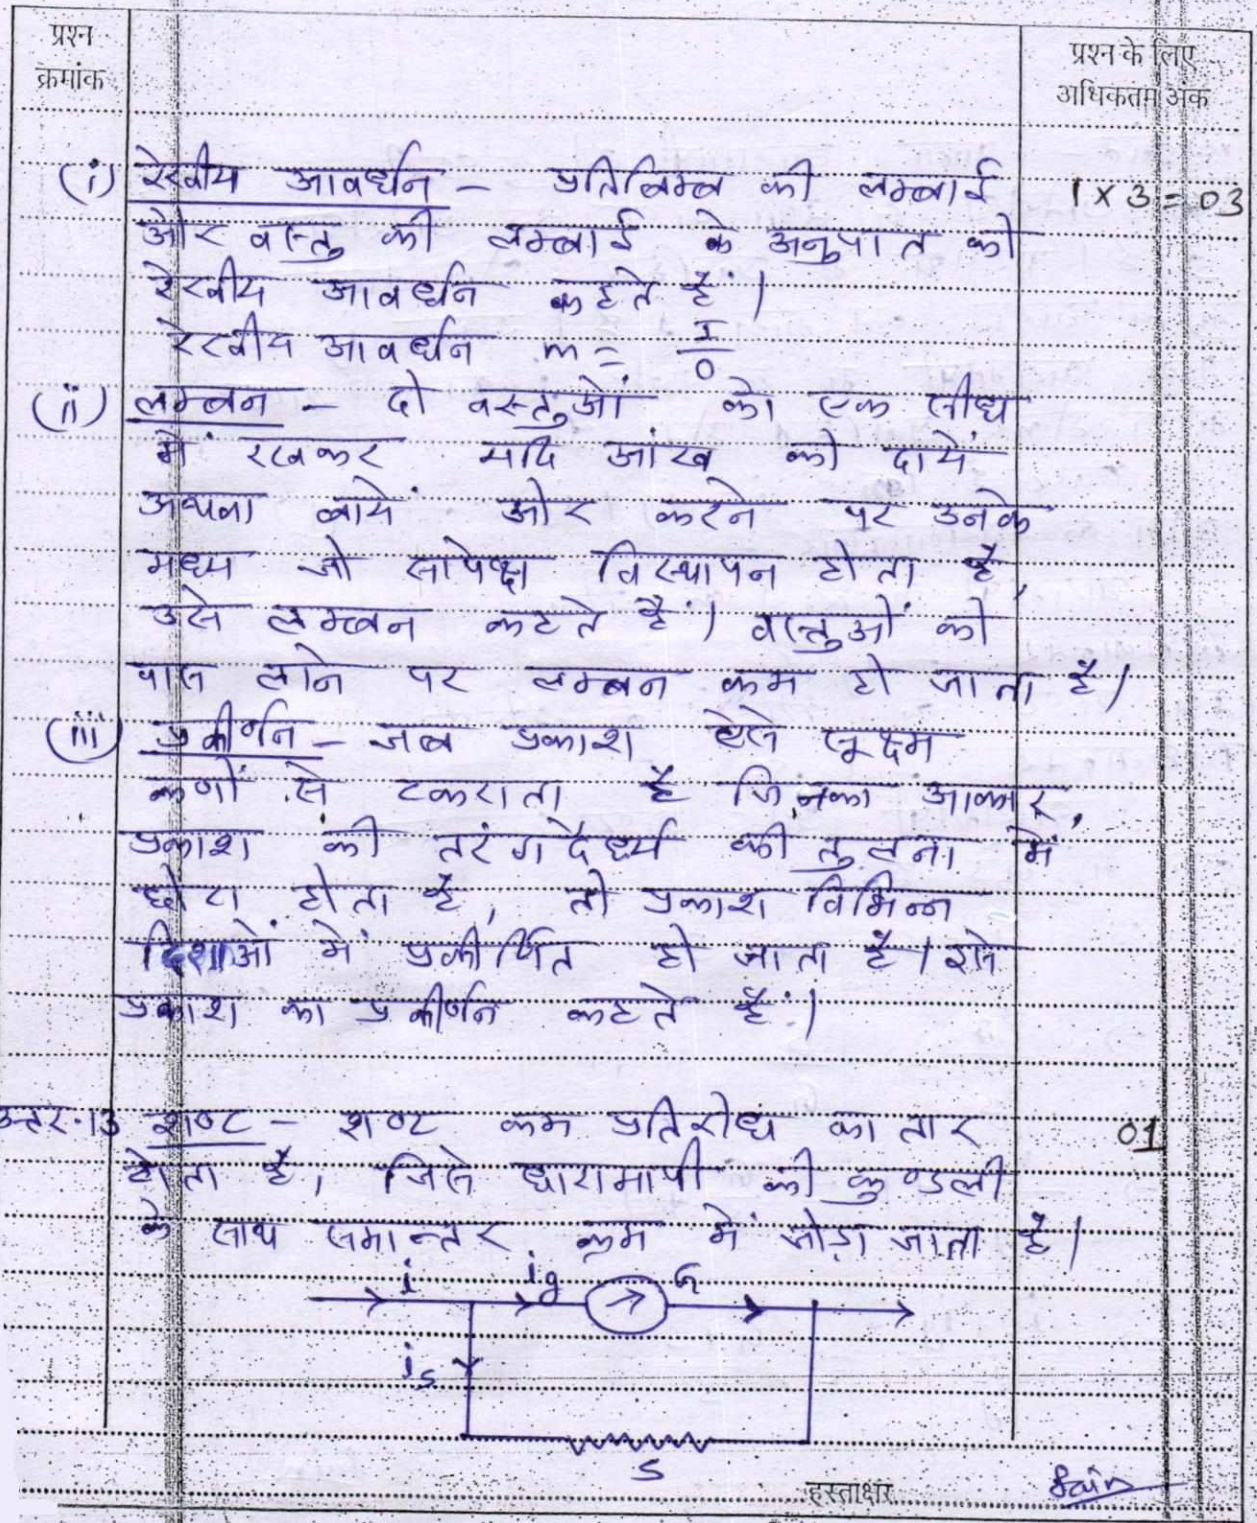 प्रश्न
क्रमांक
प्रश्न के लिए
अधिकतम अंक
(i) रेखीय आवर्धन – प्रतिबिम्ब की लम्बाई 1 x 3 = 03
और वस्तु की लम्बाई के अनुपात को
रेखीय आवर्धन कहते हैं।
रेखीय आवर्धन m = I/O
(ii) लम्बन – दो वस्तुओं को एक सीध
में रखकर यदि आंख को दायें
अथवा बायें ओर करने पर उनके
मध्य जो सापेक्ष विस्थापन होता है,
उसे लम्बन कहते हैं। वस्तुओं को
पास लाने पर लम्बन कम हो जाता है।
(iii) प्रकीर्णन – जब प्रकाश ऐसे सूक्ष्म
कणों से टकराता है जिनका आकार,
प्रकाश की तरंगदैर्ध्य की तुलना में
छोटा होता है, तो प्रकाश विभिन्न
दिशाओं में प्रकीर्णित हो जाता है। इसे
प्रकाश का प्रकीर्णन कहते हैं।
उत्तर-13 शण्ट – शण्ट कम प्रतिरोध का तार 01
होता है, जिसे धारामापी की कुण्डली
के साथ समान्तर क्रम में जोड़ा जाता है।
i ig G
is
S
हस्ताक्षर